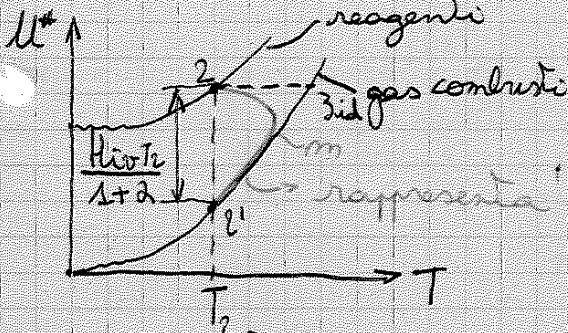 U*
reagenti
2
3id gas combusti
HivT2
1+α
m
rappresenta
2'
T
T2